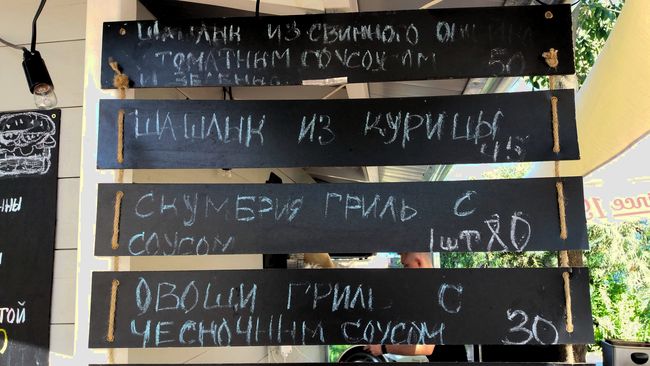 ШАШЛЫК ИЗ СВИННОГО
ТОМАТНЫМ СОУСОМ
И ЗЕЛЕНЬЮ 50
ШАШЛЫК ИЗ КУРИЦЫ
45
СКУМБРИЯ ГРИЛЬ С
СОУСОМ 1шт 80
ОВОЩИ ГРИЛЬ С
ЧЕСНОЧНЫМ СОУСОМ 30
since 19